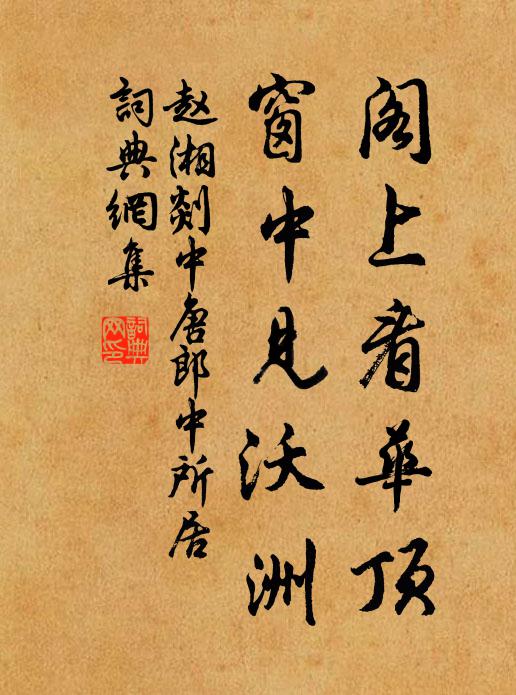 阁上看华顶
窗中見沃洲
赵湘剡中唐郎中所居
詞典網集
詞典网印